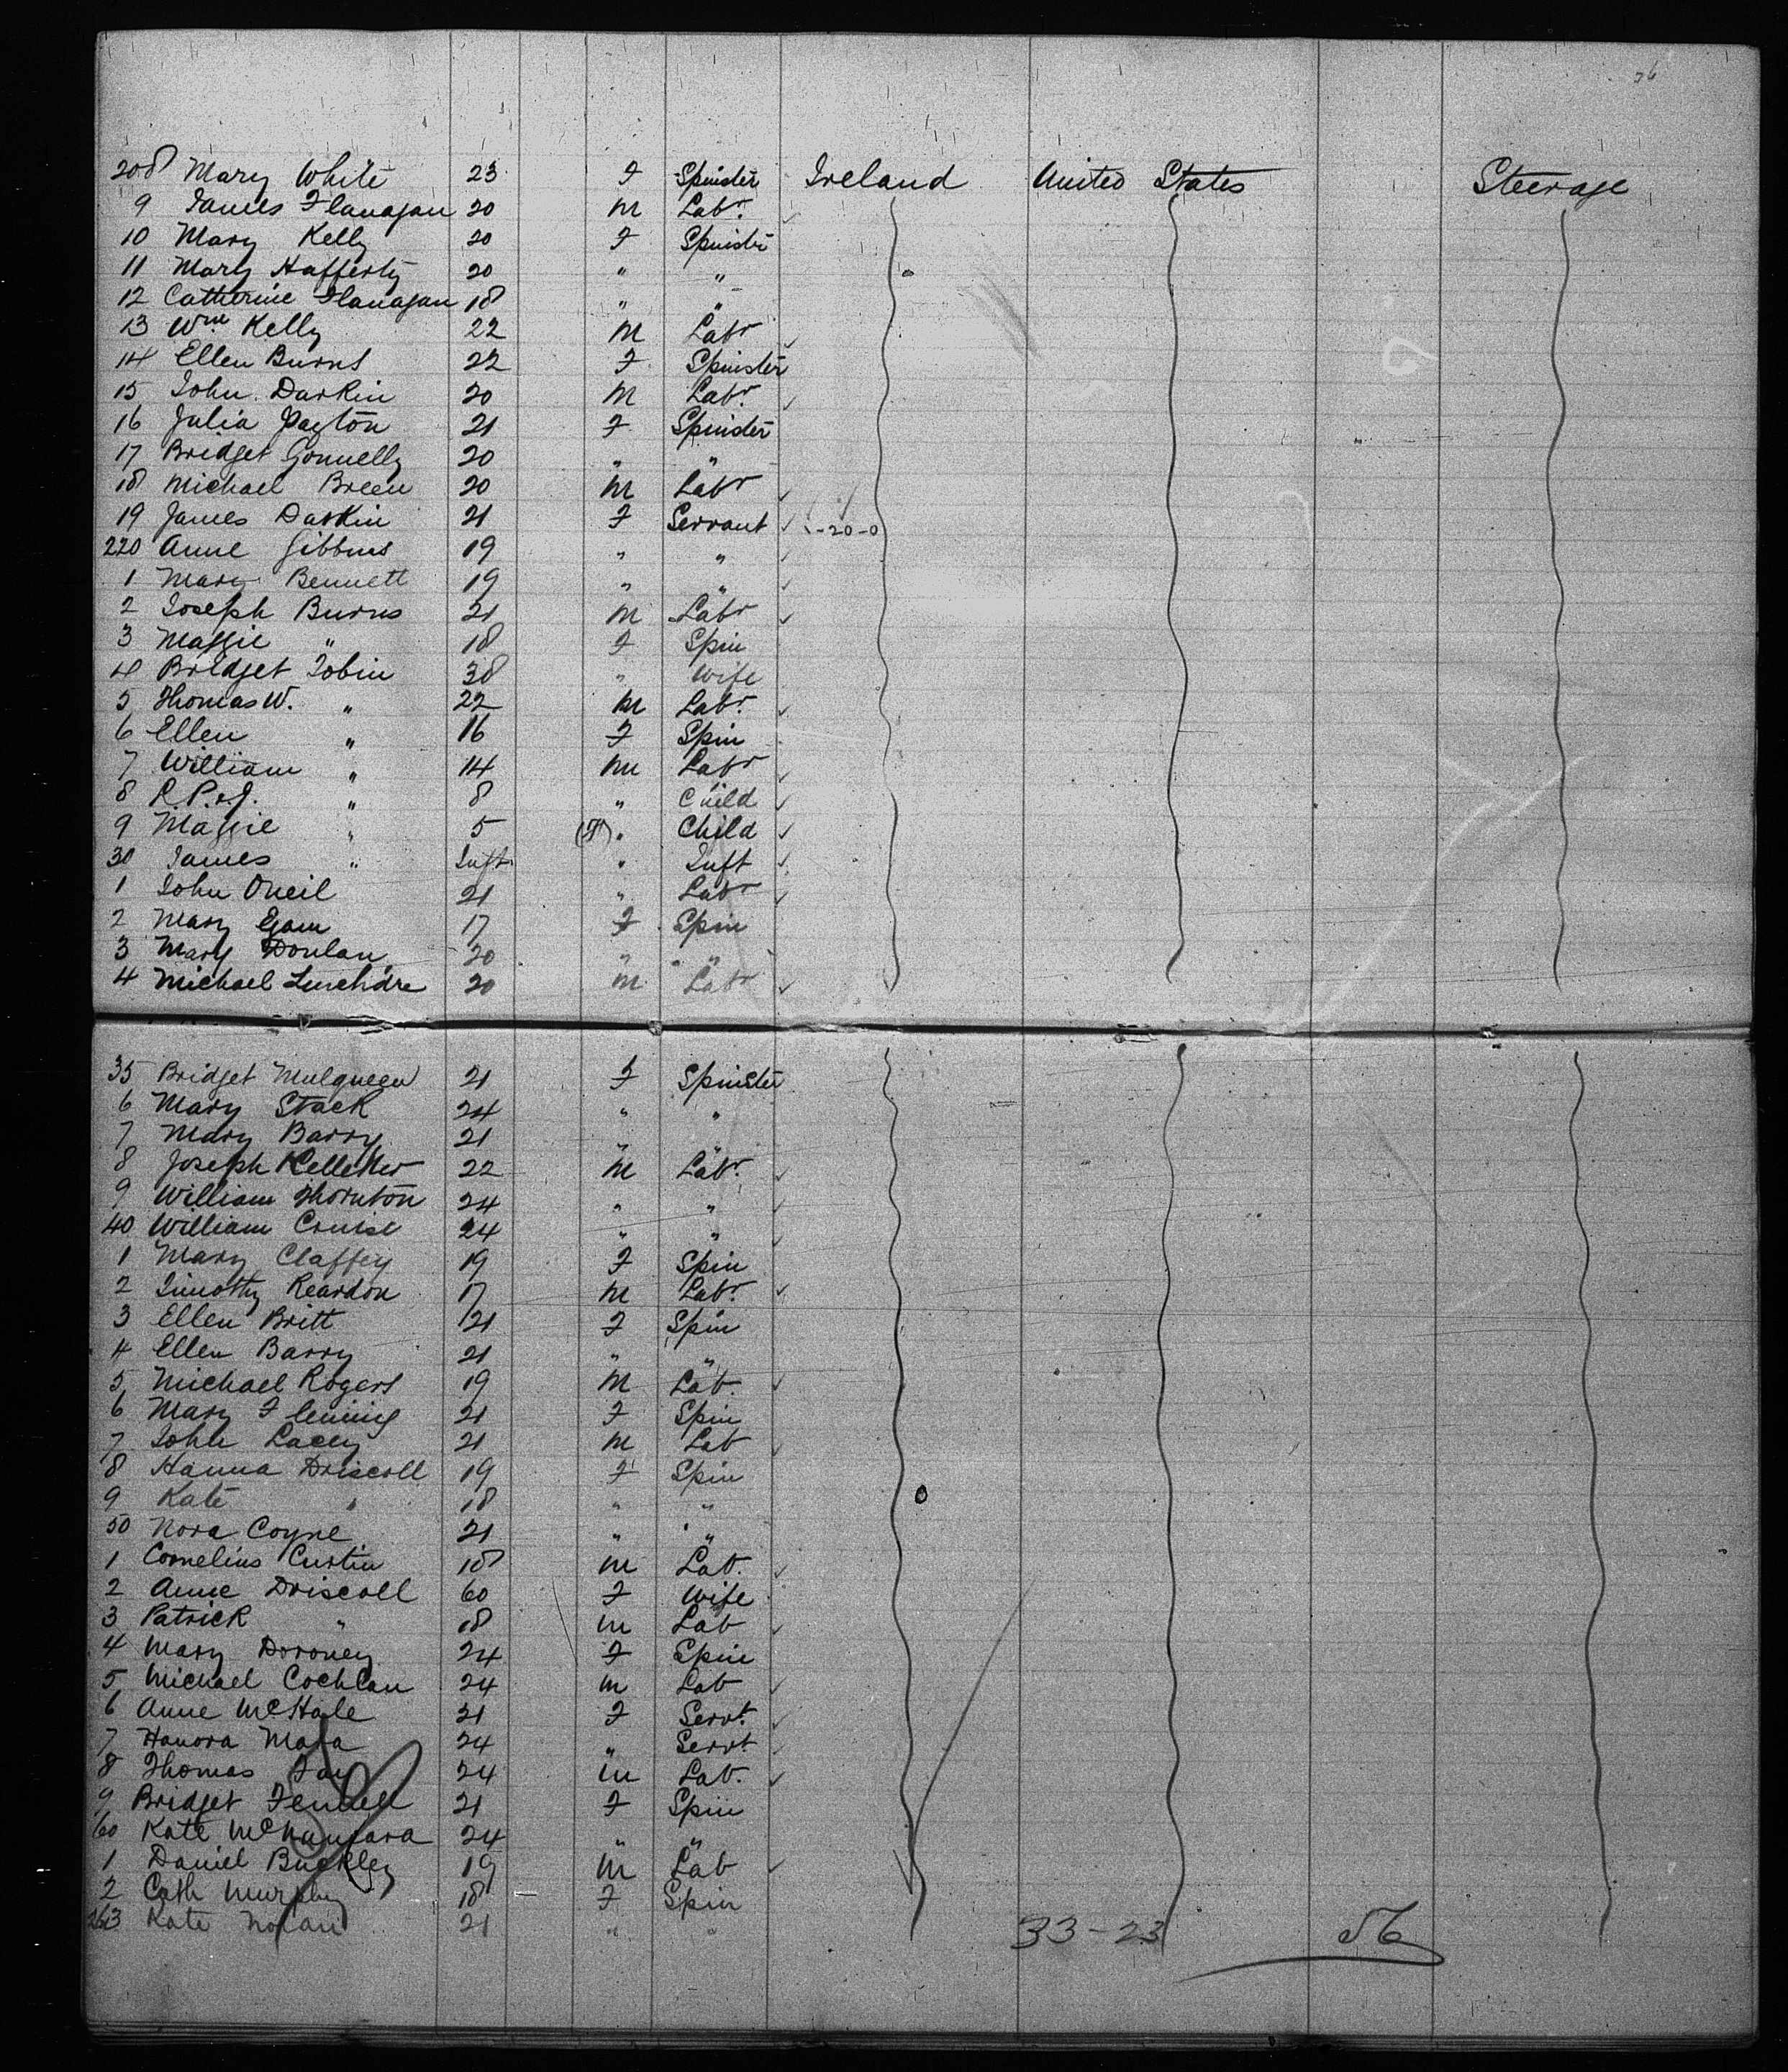 76
208 Mary White 23 F Spinster Ireland United States Steerage
9 James Flanagan 20 M Labr.
10 Mary Kelly 20 F Spinster
11 Mary Hafferty 20 " "
12 Catherine Flanagan 18 " "
13 Wm Kelly 22 M Labr
14 Ellen Burns 22 F Spinster
15 John Darkin 20 M Labr.
16 Julia Payton 21 F Spinster
17 Bridget Gonnelly 20 " "
18 Michael Breen 20 M Labr
19 James Darkin 21 F Servant -20-0
220 Anne Gibbons 19 " "
1 Mary Bennett 19 " "
2 Joseph Burns 21 M Labr
3 Maggie " 18 F Spin
4 Bridget Tobin 38 " Wife
5 Thomas W. " 22 M Labr.
6 Ellen " 16 F Spin
7 William " 14 M Labr
8 " 8 " Child
9 Maggie " 5 (F) " Child
30 James " Inft. " Inft
1 John Oneil 21 " Labr
2 Mary Egan 17 F Spin
3 Mary Donlan 20 " "
4 Michael 20 M Labr
35 Bridget Mulqueen 21 F Spinster
6 Mary Stack 24 " "
7 Mary Barry 21 " "
8 Joseph Kelleher 22 M Labr.
9 William Thornton 24 " "
40 William Cruise 24 " "
1 Mary Claffey 19 F Spin
2 Timothy Reardon 17 M Labr.
3 Ellen Britt 21 F Spin
4 Ellen Barry 21 " "
5 Michael Rogers 19 M Lab.
6 Mary Fleming 21 F Spin
7 John Lacey 21 M Lab
8 Hanna Driscoll 19 F Spin
9 Kate " 18 " "
50 Nora Coyne 21 " "
1 Cornelius Curtin 18 M Lab.
2 Anne Driscoll 60 F Wife
3 Patrick " 18 M Lab
4 Mary Doroney 24 F Spin
5 Michael Cochlan 24 M Lab
6 Anne McHale 21 F Servt.
7 Honora Mara 24 " Servt.
8 Thomas Fay 24 M Lab.
9 Bridget Fennell 21 F Spin
60 Kate McNamara 24 " "
1 Daniel Buckley 19 M Lab
2 Cath Murphy 18 F Spin
263 Kate Nolan 21 " "
33-23 56